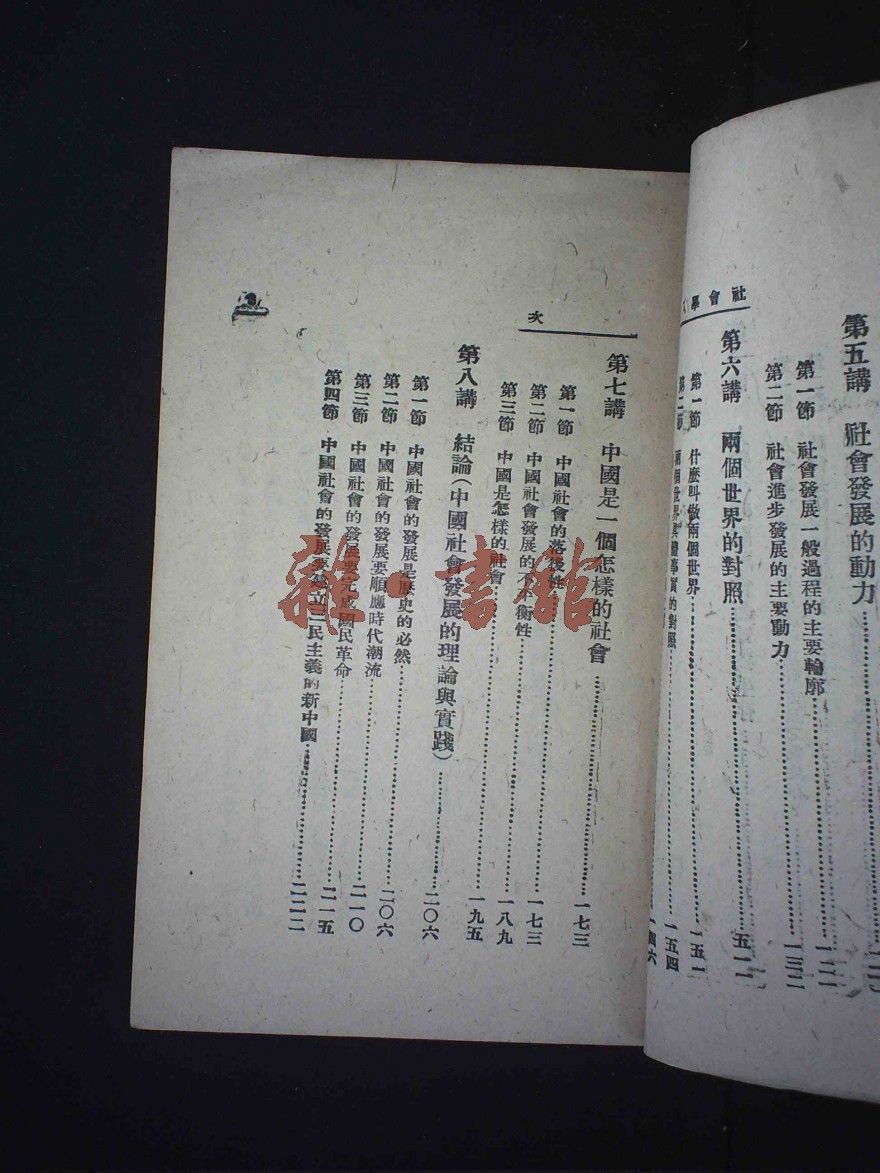 社會學
第五講 社會發展的動力
第一節 社會發展一般過程的主要輪廓
第二節 社會進步發展的主要動力……一三二
第六講 兩個世界的對照
第一節 什麽叫做兩個世界……一五一
第二節 兩個世界具體事實的對照……一五四
次
第七講 中國是一個怎樣的社會……一七三
第一節 中國社會的落後性……一七三
第二節 中國社會發展的不 衡性……一八九
第三節 中國是怎樣的社會……一九五
第八講 結論(中國社會發展的理論與實踐)……二〇六
第一節 中國社會的發展是歷史的必然……二〇六
第二節 中國社會的發展要順應時代潮流……二一〇
第三節 中國社會的發展要完成國民革命……二一五
第四節 中國社會的發展要建立三民主義的新中國……二二二
雜·書館